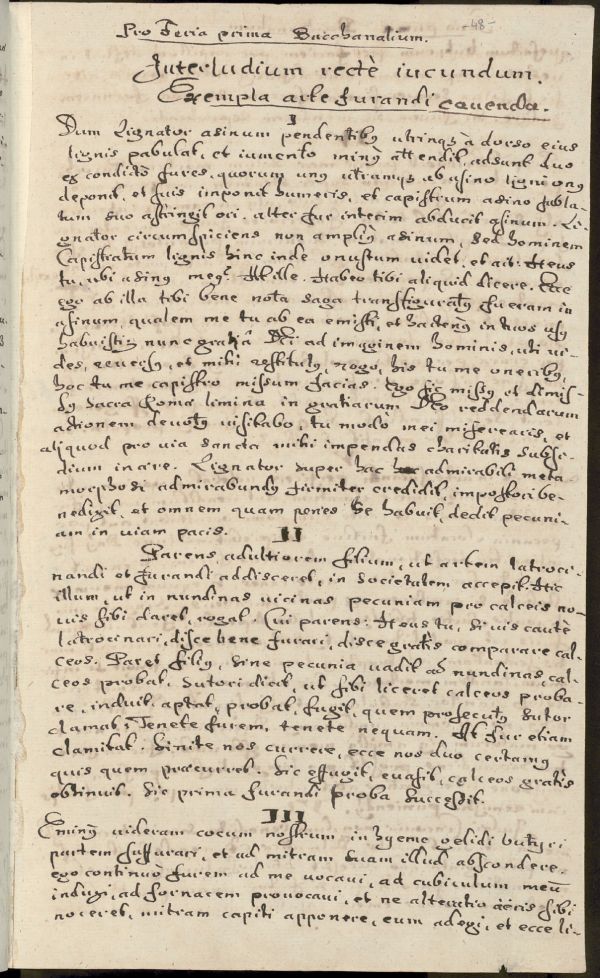 -48-
Pro Feria prima Bacchanalium.
Interludium rectè iucundum.
Exempla arte furandi cavenda.
I
Dum Lignator asinum pendentibꝯ utrinqꝫ à dorso eius
lignis pabulat, et iumento minꝯ attendit, adsunt duo
ex condicto fures, quorum unꝯ utrumqꝫ ab asino ligni onꝯ
deponit, et suis imponit humeris, et capistrum asino subla-
tum suo astringit ori, alter fur interim abducit asinum. Li-
gnator circumspiciens non ampliꝯ asinum, sed hominem
Capistratum lignis hinc inde onustum videt, et ait: Heus
tu, ubi asinꝯ meꝯ? Ille. Habeo tibi aliquid dicere. Ecce
ego ab illa tibi bene nota saga transfiguratꝯ fueram in
asinum, qualem me tu ab ea emisti, et hactenꝯ in tuos usꝯ
habuisti, nunc gratiâ Dei ad imaginem hominis, uti vi-
des, reversꝯ, et mihi restitutꝯ, rogo, his tu me oneribꝯ,
hoc tu me capistro missum facias. Ego sic missꝯ, et dimis-
sꝯ sacra Romæ limina in gratiarum Deo reddendarum
actionem devotꝯ visitabo, tu modò mei miserearis, et
aliquod pro via sancta mihi impendas charitatis subsi-
dium in ære. Lignator super hac admirabili meta-
morphosi admirabundꝯ firmiter credidit, impostori be-
nedixit, et omnem quam penes se habuit, dedit pecuni-
am in viam pacis.
II
Parens adultiorem filium, ut artem latroci-
nandi et furandi addisceret, in societatem accepit. Hic
illum, ut in nundinas vicinas pecuniam pro calceis no-
vis sibi daret, rogat. Cui parens: Heus tu, si vis cautè
latrocinari, disce bene furari, disce gratis comparare cal-
ceos. Paret filiꝯ, sine pecunia vadit ad nundinas, cal-
ceos probat. Sutori dicit, ut sibi liceret calceos proba-
re, induit, aptat, probat, fugit, quem prosecutꝯ Sutor
clamat, Tenete furem, tenete nequam. At fur etiam
clamitat. Sinite nos currere, ecce nos duo certamꝯ
quis quem præcurret. Sic effugit, evasit, calceos gratis
obtinuit. Sic prima furandi proba successit.
III
Eminꝯ videram cocum nostrum in hyeme gelidi butyri
partem suffurari, et ad mitram suam illud abscondere.
ego continuò furem ad me vocavi, ad cubiculum meū
induxi, ad fornacem provocavi, et ne alteratio aëris sibi
noceret, mitram capiti apponere, eum adegi, et ecce li-